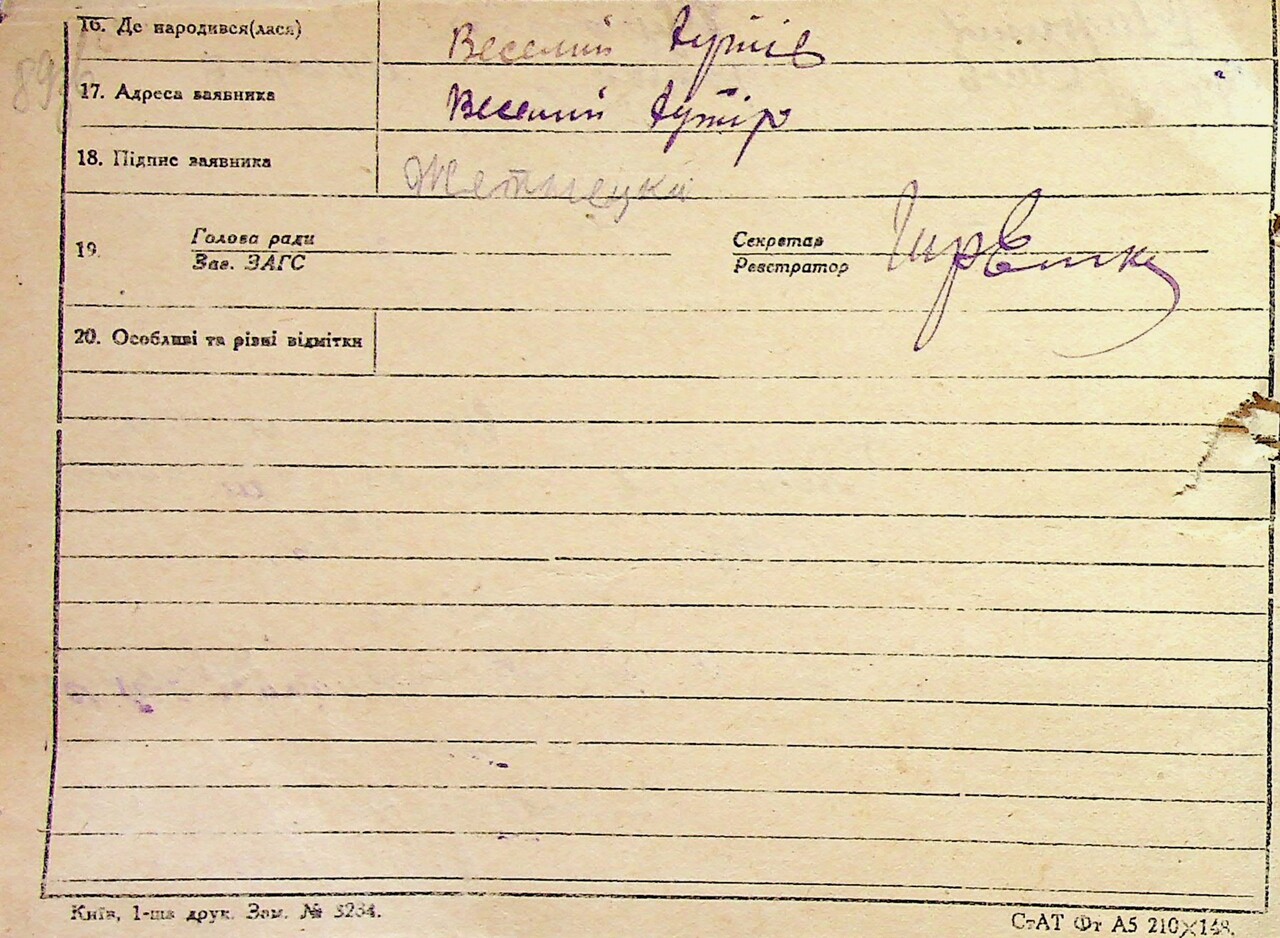 16. Де народився(лася) Веселий Хутір
17. Адреса заявника Веселий Хутір
18. Підпис заявника
19. Голова ради Секретар
Зав. ЗАГС Реєстратор
20. Особливі та різні відмітки
Київ, 1-ша друк. Зам. № 3264. СтАТ Фт А5 210×148.